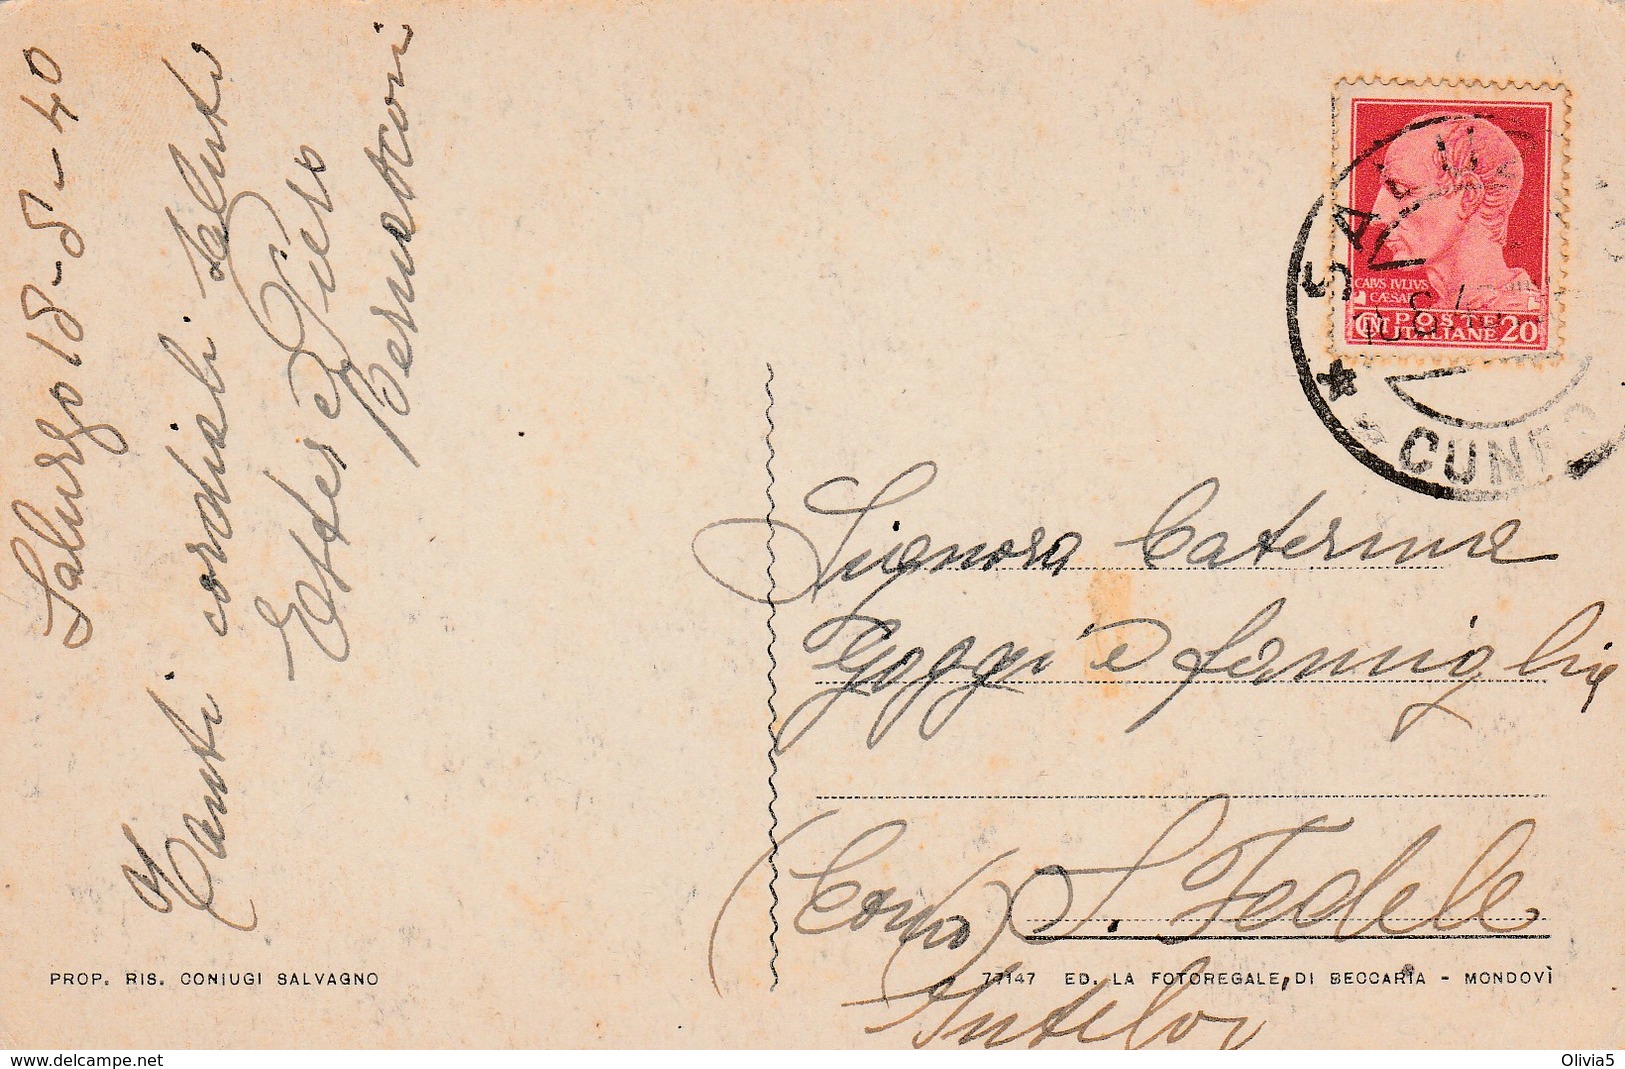 Saluzzo 18-8-40
Tanti cordiali saluti
Ester e Piero
Bernasconi
SALUZ
CUNEO
CAIVS IVLIVS
CÆSAR
POSTE
ITALIANE 20
Signora Caterina
Goggi e famiglia
(Como) S. Fedele
Intelvi
PROP. RIS. CONIUGI SALVAGNO
77147 ED. LA FOTOREGALE, DI BECCARIA - MONDOVÌ
www.delcampe.net
Olivia5